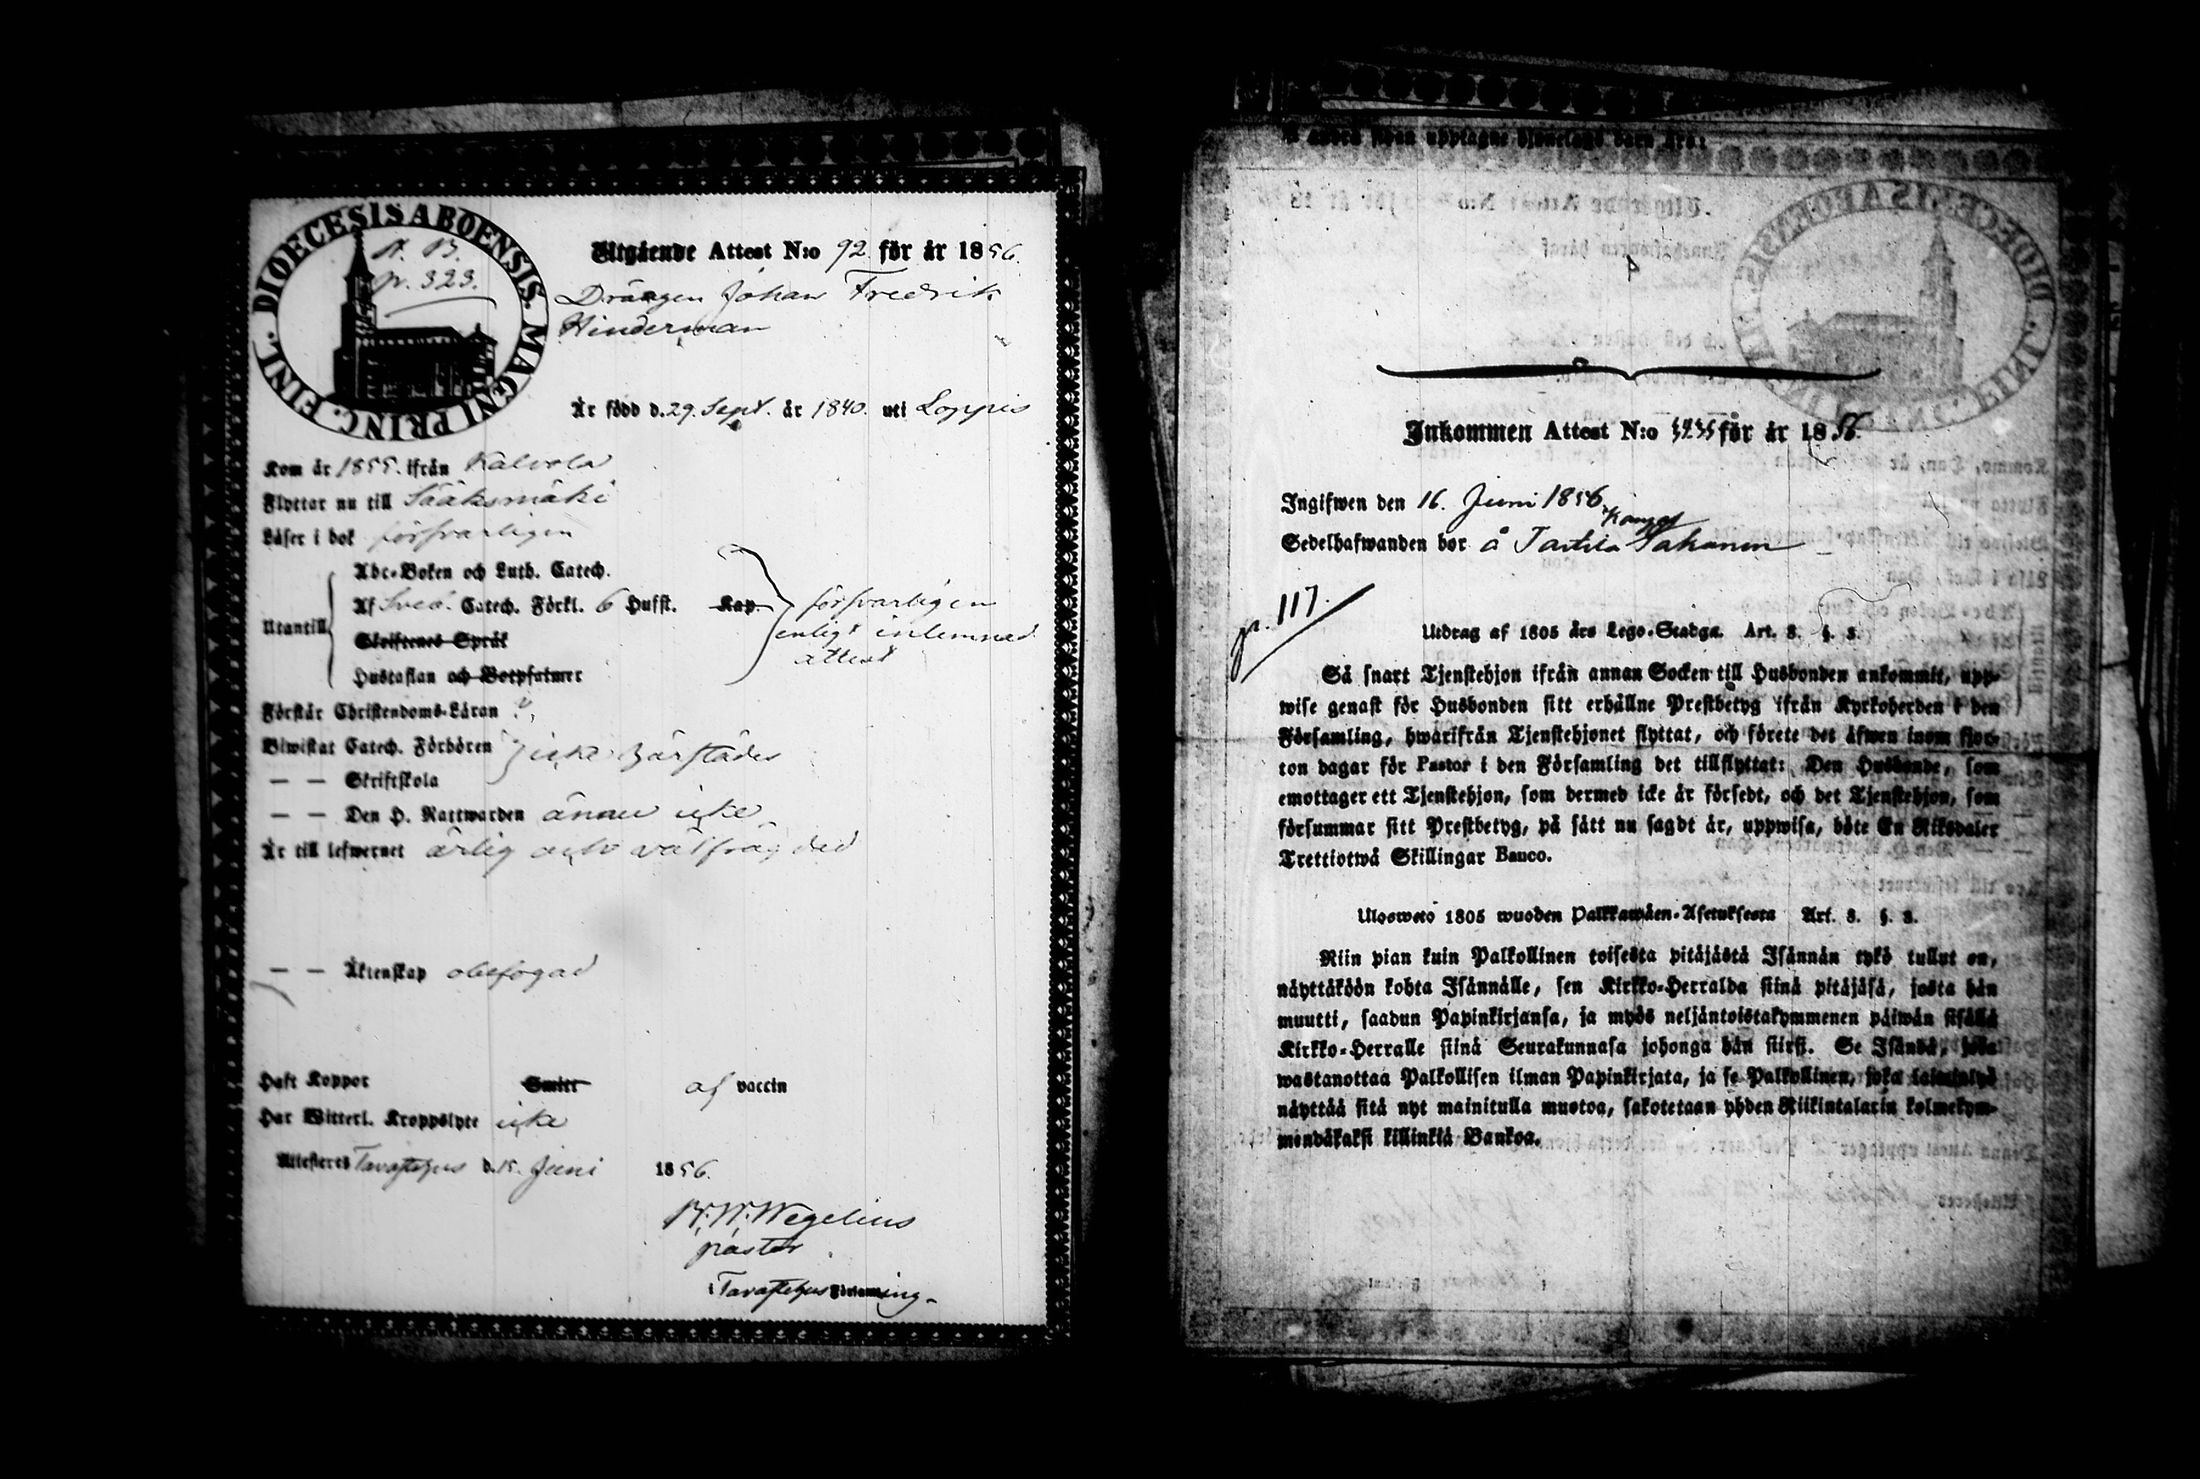 DIOECESIS ABOENSIS. MAGNI PRINC. FINL.
N. B.
p. 323.
Utgående Attest N:o 92 för år 1856.
Drängen Johan Fredrik
Hinderman
Är född d. 29. Sept. år 1840. uti Loppis
Kom år 1855. ifrån Kalvola
Flyttar nu till Sääksmäki
Läser i bok försvarligen
Utantill
Abc-Boken och Luth. Catech.
Af Sved. Catech. Förkl. 6 Hufst. Kap.
Skriftenes Språk
Hustaflan och Botpsalmer
försvarligen
enligt inlemnad
attest
Förstår Christendoms-Läran
Biwistat Catech. Förhören
— — Skriftskola
icke härstädes
— — Den H. Nattwarden ännu icke
Är till lefwernet ärlig och välfrägdad
— — Äktenskap obefogad
Haft Koppor Smitt af vaccin
Har Witterl. Kroppslyte icke
Attesteres Tavastehus d. 15. Juni 1856.
Wegelius
pastor
i Tavastehus Församling.
Inkommen Attest N:o för år 1856.
Ingifwen den 16. Juni 1856
Sedelhafwanden bor å
p. 117.
Utdrag af 1805 års Lego-Stadga. Art. 3. §. 3.
Så snart Tjenstehjon ifrån annan Socken till Husbonden ankommit, upp-
wise genast för Husbonden sitt erhållne Prestbetyg ifrån Kyrkoherden i den
Församling, hwarifrån Tjenstehjonet flyttat, och förete det äfwen inom fjor-
ton dagar för Pastor i den Församling det tillflyttat: Den Husbonde, som
emottager ett Tjenstehjon, som dermed icke är försedt, och det Tjenstehjon, som
försummar sitt Prestbetyg, på sätt nu sagdt är, uppwisa, böte En Riksdaler
Trettiotwå Skillingar Banco.
Ulosweto 1805 wuoden Palkkawäen-Asetuksesta Art. 3. §. 3.
Niin pian kuin Palkollinen toisesta pitäjästä Isännän tykö tullut on,
näyttäköön kohta Isännälle, sen Kirkko-Herralda siinä pitäjäsä, josta hän
muutti, saadun Papinkirjansa, ja myös neljäntoistakymmenen päiwän sisällä
Kirkko-Herralle siinä Seurakunnasa johonga hän siirsi. Se Isändä, joka
wastanottaa Palkollisen ilman Papinkirjata, ja se Palkollinen, joka laiminlyö
näyttää sitä nyt mainitulla muotoa, sakotetaan yhden Riikintalarin kolmekym-
mendäkaksi killinkiä Bankoa.